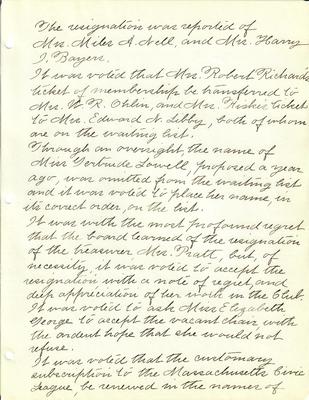 The resignation was reported of
Mrs. Miles A. Nell, and Mrs. Harry
I. Bayers.
It was voted that Mrs. Robert Richard's
ticket of membership be transferred to
Mrs. W. R. Ohlin, and Mrs. Fiske's ticket
to Mrs. Edward N. Libby, both of whom
are on the waiting list.
Through an oversight the name of
Miss Gertrude Lowell, proposed a year
ago, was omitted from the waiting list
and it was voted to place her name in
its correct order, on the list.
It was with the most profound regret
that the board learned of the resignation
of the treasurer Mrs. Pratt, but, of
necessity, it was voted to accept the
resignation with a note of regret, and
deep appreciation of her work in the Club.
It was voted to ask Miss Elizabeth
George to accept the vacant chair with
the ardent hope that she would not
refuse.
It was voted that the customary
subscription to the Massachusetts Civic
League, be renewed in the names of